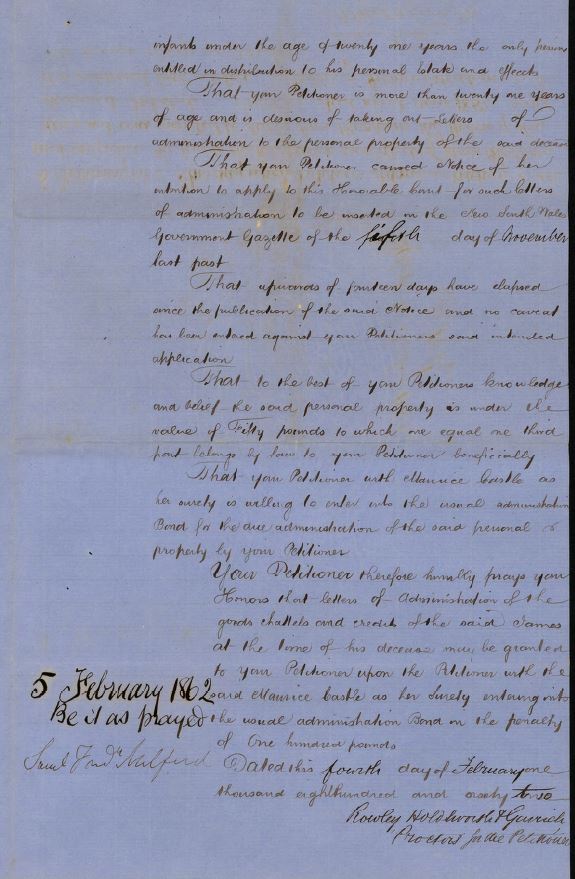 infants under the age of twenty one years the only persons
entitled in distribution to his personal Estate and effects
That your Petitioner is more than twenty one years
of age and is desirous of taking out Letters of
administration to the personal property of the said deceased
That your Petitioner caused Notice of her
intention to apply to this Honorable Court for such letters
of administration to be inserted in the New South Wales
Government Gazette of the fifth day of November
last past
That upwards of fourteen days have elapsed
since the publication of the said Notice and no caveat
has been entered against your Petitioners said intended
application
That to the best of your Petitioners knowledge
and belief the said personal property is under the
value of Fifty pounds to which one equal one third
part belongs by law to your Petitioner beneficially
That your Petitioner with Maurice Castle as
her surety is willing to enter into the usual administration
Bond for the due administration of the said personal
property by your Petitioner
Your Petitioner therefore humbly prays your
Honors that letters of Administration of the
goods chattels and credits of the said James
at the time of his decease may be granted
to your Petitioner upon the Petitioner with the
said Maurice Castle as her Surety entering into
the usual administration Bond in the penalty
of One hundred pounds
Dated this fourth day of February one
thousand eighthundred and sixty two
Rowley Holdsworth & Garrick
Proctors for the Petitioner
5 February 1862
Be it as prayed
Saml Fredk Milford